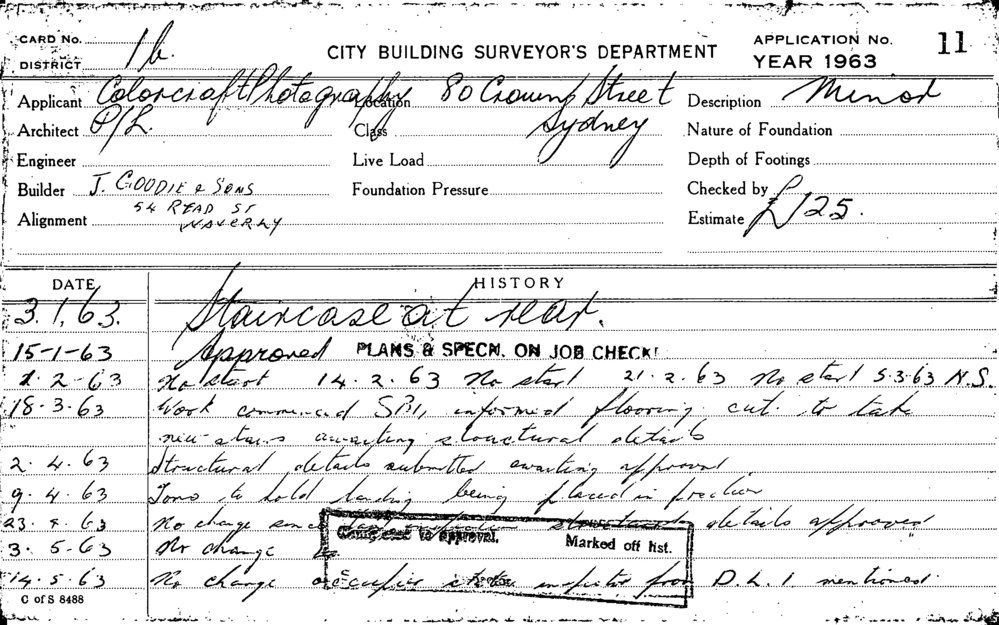 CARD No. 1b. CITY BUILDING SURVEYOR'S DEPARTMENT APPLICATION No. 11
DISTRICT YEAR 1963
Applicant Colorcraft Photography Location 80 Crown Street Description Minor
Architect P/L. Class Sydney Nature of Foundation
Engineer Live Load Depth of Footings
Builder J. GOODIE & SONS Foundation Pressure Checked by
54 READ ST
Alignment WAVERLY Estimate £125.
DATE HISTORY
3.1.63. Staircase at rear.
15-1-63 Approved PLANS & SPECN. ON JOB CHECK
1.2-63 No start 14.2.63 No start 21.2.63 No start 5.3.63 N.S.
18.3.63 Work commenced informed flooring cut to take
new stairs awaiting structural details
2.4.63 Structural details submitted awaiting approval
9.4.63 to hold landing being placed in
23.4.63 No change since last inspection structural details approved
3.5.63 No change
Completed to approval. Marked off list.
14.5.63 No change occupier states inspector from D.L.I mentioned
C of S 8488